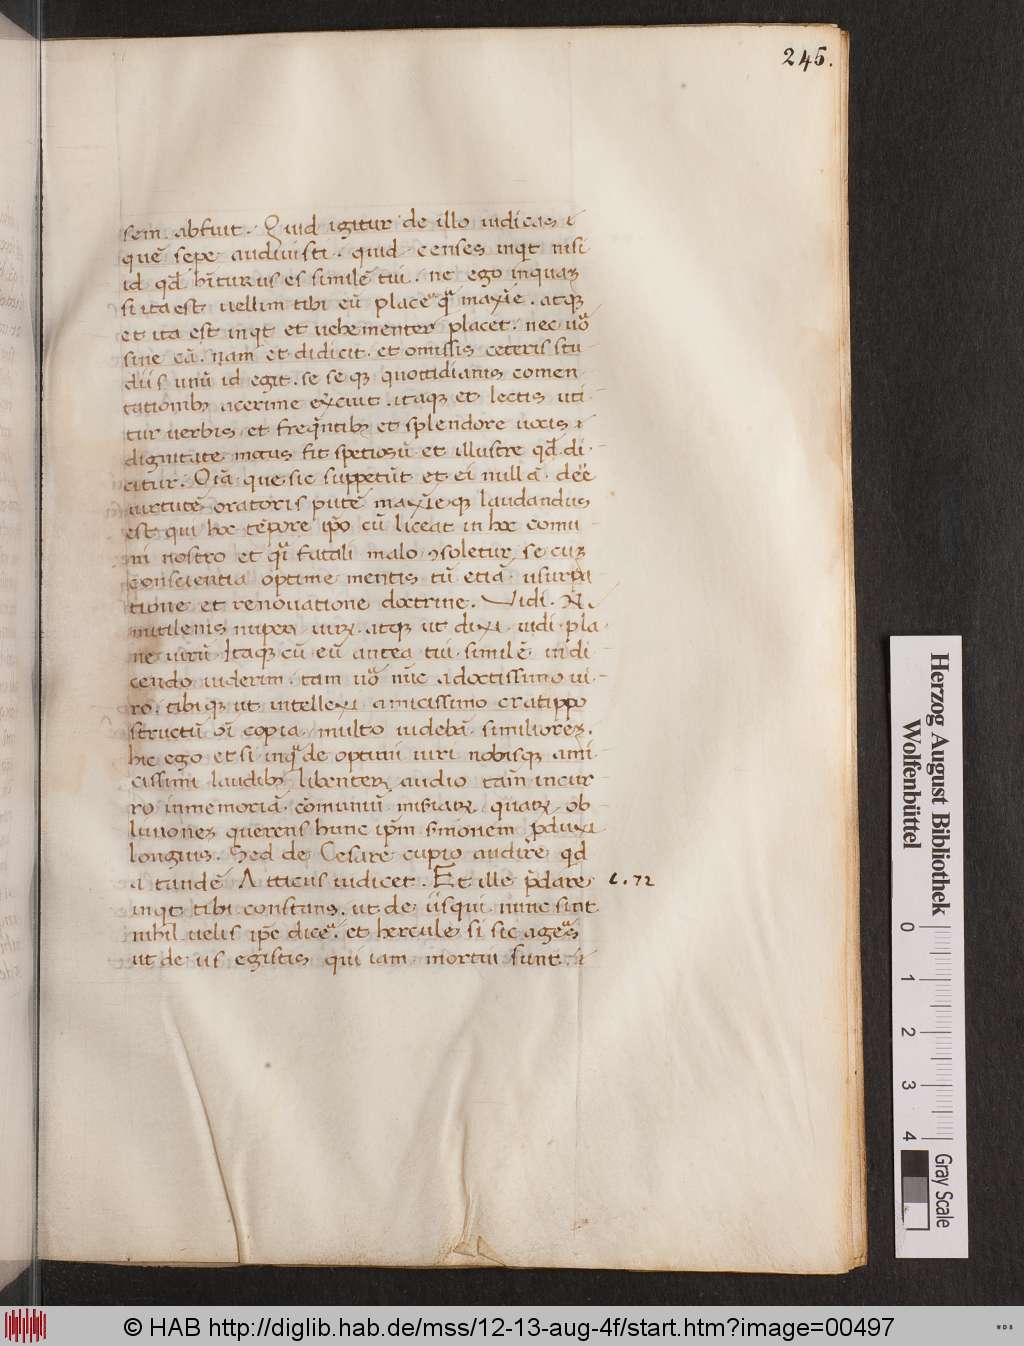 245.
sem. abfuit. Quid igitur de illo iudicas i
quē sepe audiuisti. quid censes inqt nisi
id qđ hīturus es similē tui. ne ego inquaʒ
si ita est uellim tibi eū placeʳ qᵃ maxīe. atqʒ
et ita est inqt et uehementer placet. nec uo
sine cā. nam et didicit. et omissis ceteris stu
diis unū id egit. se se qʒ quottidianis comen
tationibʒ acerime exˀcuit. itaqʒ et lectis uti
tur uerbis et freqn̄tibʒ et splendore uocis i
dignitate motus fit spetiosū et illustre qđ di
citur. Oīa que sic suppetūt et ei null ā. deˀe
uirtutē oratoris putē maxīe qʒ laudandus
est qui hoc tēpore ip̄o cū liceat in hoc comu
ni nostro et qⁱ fatali malo ꝯsoletur se cuʒ
conscientia optime mentis tū etiā usurpa
tione et renouatione doctrine. Vidi. N̄.
mitilenis nuper uirꝝ. atqʒ ut dixi uidi pla
ne uirū Itaqʒ cū eū antea tui similē in di
cendo uiderim. tam uo nūc a doctissimo ui
ro. tibi qʒ ut intellexi amicissimo cratippo
structū oī copia. multo uidebā similiorez.
hic ego etsi inqᵃ de optimi uiri nobisqʒ ami
cissimi laudibʒ libenter audio tam̄ incur
ro in memoriā comuniū misiaꝝ quaꝝ ob
liuionez querens hunc ip̄m s̄monem p̄duxi
longius. Sed de Cesare cupio audire qđ
a tandē Atticus iudicet. Et ille p̄dare
inqt tibi constans. ut de iisqui nunc sint
nihil uelis ip̄e diceʳ. et hercule si sic ageˢ
ut de iis egistis qui iam mortui sunt. i
c. 72
Herzog August Bibliothek
Wolfenbüttel
0 1 2 3 4
Gray Scale
© HAB http://diglib.hab.de/mss/12-13-aug-4f/start.htm?image=00497